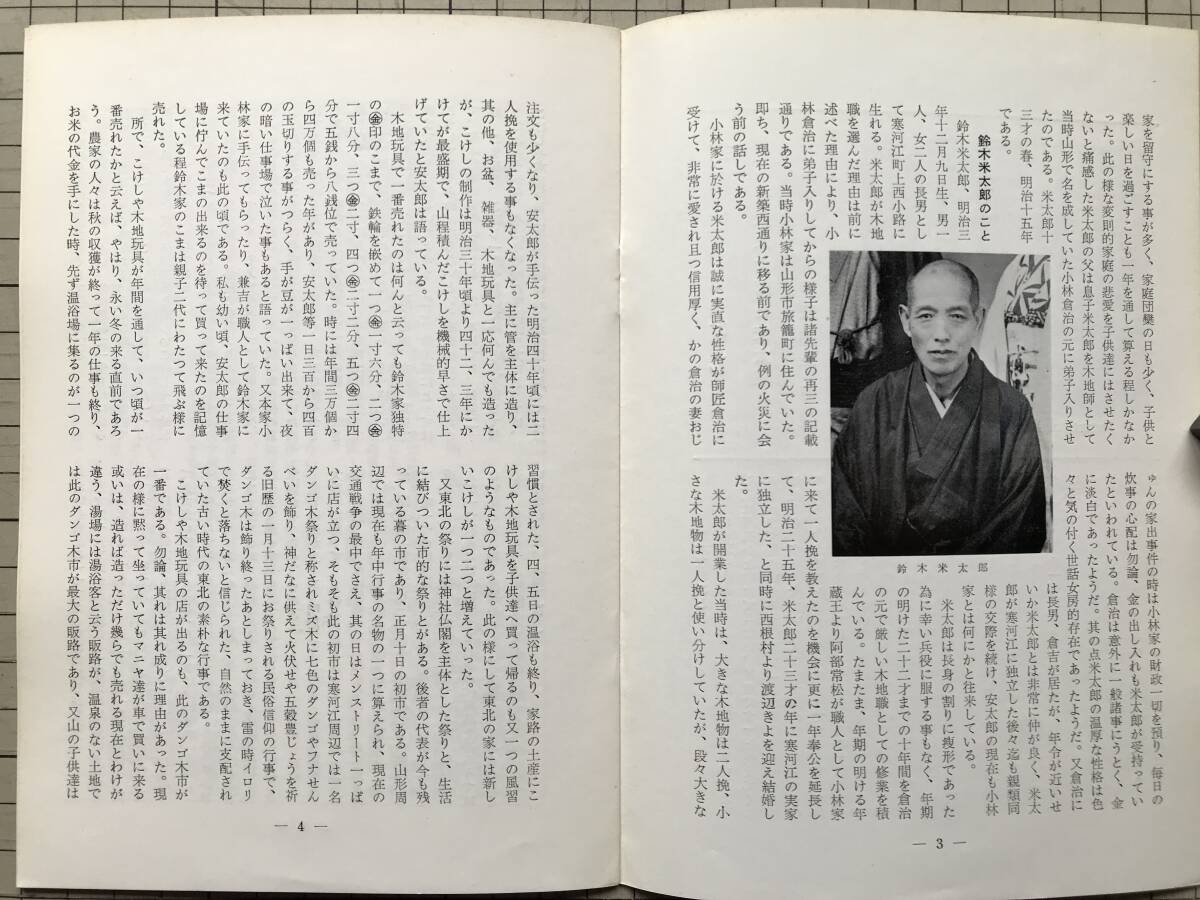 家を留守にする事が多く、家庭団欒の日も少く、子供と
楽しい日を過ごすことも一年を通して算える程しかなか
った。此の様な変則的家庭の悲愛を子供達にはさせたく
ないと痛感した米太郎の父は息子米太郎を木地師として
当時山形で名を成していた小林倉治の元に弟子入りさせ
たのである。米太郎十
三才の春、明治十五年
である。
鈴木米太郎のこと
鈴木米太郎、明治三
年十二月九日生、男一
人、女二人の長男とし
て寒河江町上西小路に
生れる。米太郎が木地
職を選んだ理由は前に
述べた理由により、小
林倉治に弟子入りしてからの様子は諸先輩の再三の記載
通りである。当時小林家は山形市旅籠町に住んでいた。
即ち、現在の新築西通りに移る前であり、例の火災に会
う前の話しである。
小林家に於ける米太郎は誠に実直な性格が師匠倉治に
受けて、非常に愛され且つ信用厚く、かの倉治の妻おじ
鈴木米太郎
ゅんの家出事件の時は小林家の財政一切を預り、毎日の
炊事の心配は勿論、金の出し入れも米太郎が受持ってい
たといわれている。倉治は意外に一般諸事にうとく、金
に淡白であったようだ。其の点米太郎の温厚な性格は色
々と気の付く世話女房的存在であったようだ。又倉治に
は長男、倉吉が居たが、年令が近いせ
いか米太郎とは非常に仲が良く、米太
郎が寒河江に独立した後々迄も親類同
様の交際を続け、安太郎の現在も小林
家とは何にかと往来している。
米太郎は長身の割りに痩形であった
為に幸い兵役に服する事もなく、年期
の明けた二十二才までの十年間を倉治
の元で厳しい木地職としての修業を積
んでいる。たまたま、年期の明ける年
蔵王より阿部常松が職人として小林家
に来て一人挽を教えたのを機会に更に一年奉公を延長し
て、明治二十五年、米太郎二十三才の年に寒河江の実家
に独立した、と同時に西根村より渡辺きよを迎え結婚し
た。
米太郎が開業した当時は、大きな木地物は二人挽、小
さな木地物は一人挽と使い分けしていたが、段々大きな
― 3 ―
注文も少くなり、安太郎が手伝った明治四十年頃には二
人挽を使用する事もなくなった。主に管を主体に造り、
其の他、お盆、雑器、木地玩具と一応何んでも造った
が、こけしの制作は明治三十年頃より四十二、三年にか
けてが最盛期で、山程積んだこけしを機械的早さで仕上
げていたと安太郎は語っている。
木地玩具で一番売れたのは何んと云っても鈴木家独特
の㊎印のこまで、鉄輪を嵌めて一つ㊎一寸六分、二つ㊎
一寸八分、三つ㊎二寸、四つ㊎二寸二分、五つ㊎二寸四
分で五銭から八銭位で売っていた。時には年間三万個か
ら四万個も売った年があり、安太郎等一日三百から四百
の玉切りする事がつらく、手が豆が一っぱい出来て、夜
の暗い仕事場で泣いた事もあると語っていた。又本家小
林家に手伝ってもらったり、兼吉が職人として鈴木家に
来ていたのも此の頃である。私も幼い頃、安太郎の仕事
場に佇んでこまの出来るのを待って買って来たのを記憶
している程鈴木家のこまは親子二代にわたって飛ぶ様に
売れた。
所で、こけしや木地玩具が年間を通して、いつ頃が一
番売れたかと云えば、やはり、永い冬の来る直前であろ
う。農家の人々は秋の収穫が終って一年の仕事も終り、
お米の代金を手にした時、先ず温浴場に集るのが一つの
習慣とされた、四、五日の温浴も終り、家路の土産にこ
けしや木地玩具を子供達へ買って帰るのも又一つの風習
のようなものであった。此の様にして東北の家には新し
いこけしが一つ二つと増えていった。
又東北の祭りには神社仏閣を主体とした祭りと、生活
に結びついた市的な祭りとがある。後者の代表が今も残
っている暮の市であり、正月十日の初市である。山形周
辺では現在も年中行事の名物の一つに算えられ、現在の
交通戦争の最中でさえ、其の日はメンストリート一っぱ
いに店が立つ、そもそも此の初市は寒河江周辺では一名
ダンゴ木祭りと称されミズ木に七色のダンゴやフナせん
べいを飾り、神だなに供えて火伏せや五穀豊じょうを祈
る旧歴の一月十三日にお祭りされる民俗信仰の行事で、
ダンゴ木は飾り終ったあとしまっておき、雷の時イロリ
で焚くと落ちないと信じられた、自然のままに支配され
ていた古い時代の東北の素朴な行事である。
こけしや木地玩具の店が出るのも、此のダンゴ木市が
一番である。勿論、其れは其れ成りに理由があった。現
在の様に黙って坐っていてもマニヤ達が車で買いに来る
或いは、造れば造っただけ幾らでも売れる現在とわけが
違う、湯場には湯浴客と云う販路が、温泉のない土地で
は此のダンゴ木市が最大の販路であり、又山の子供達は
― 4 ―